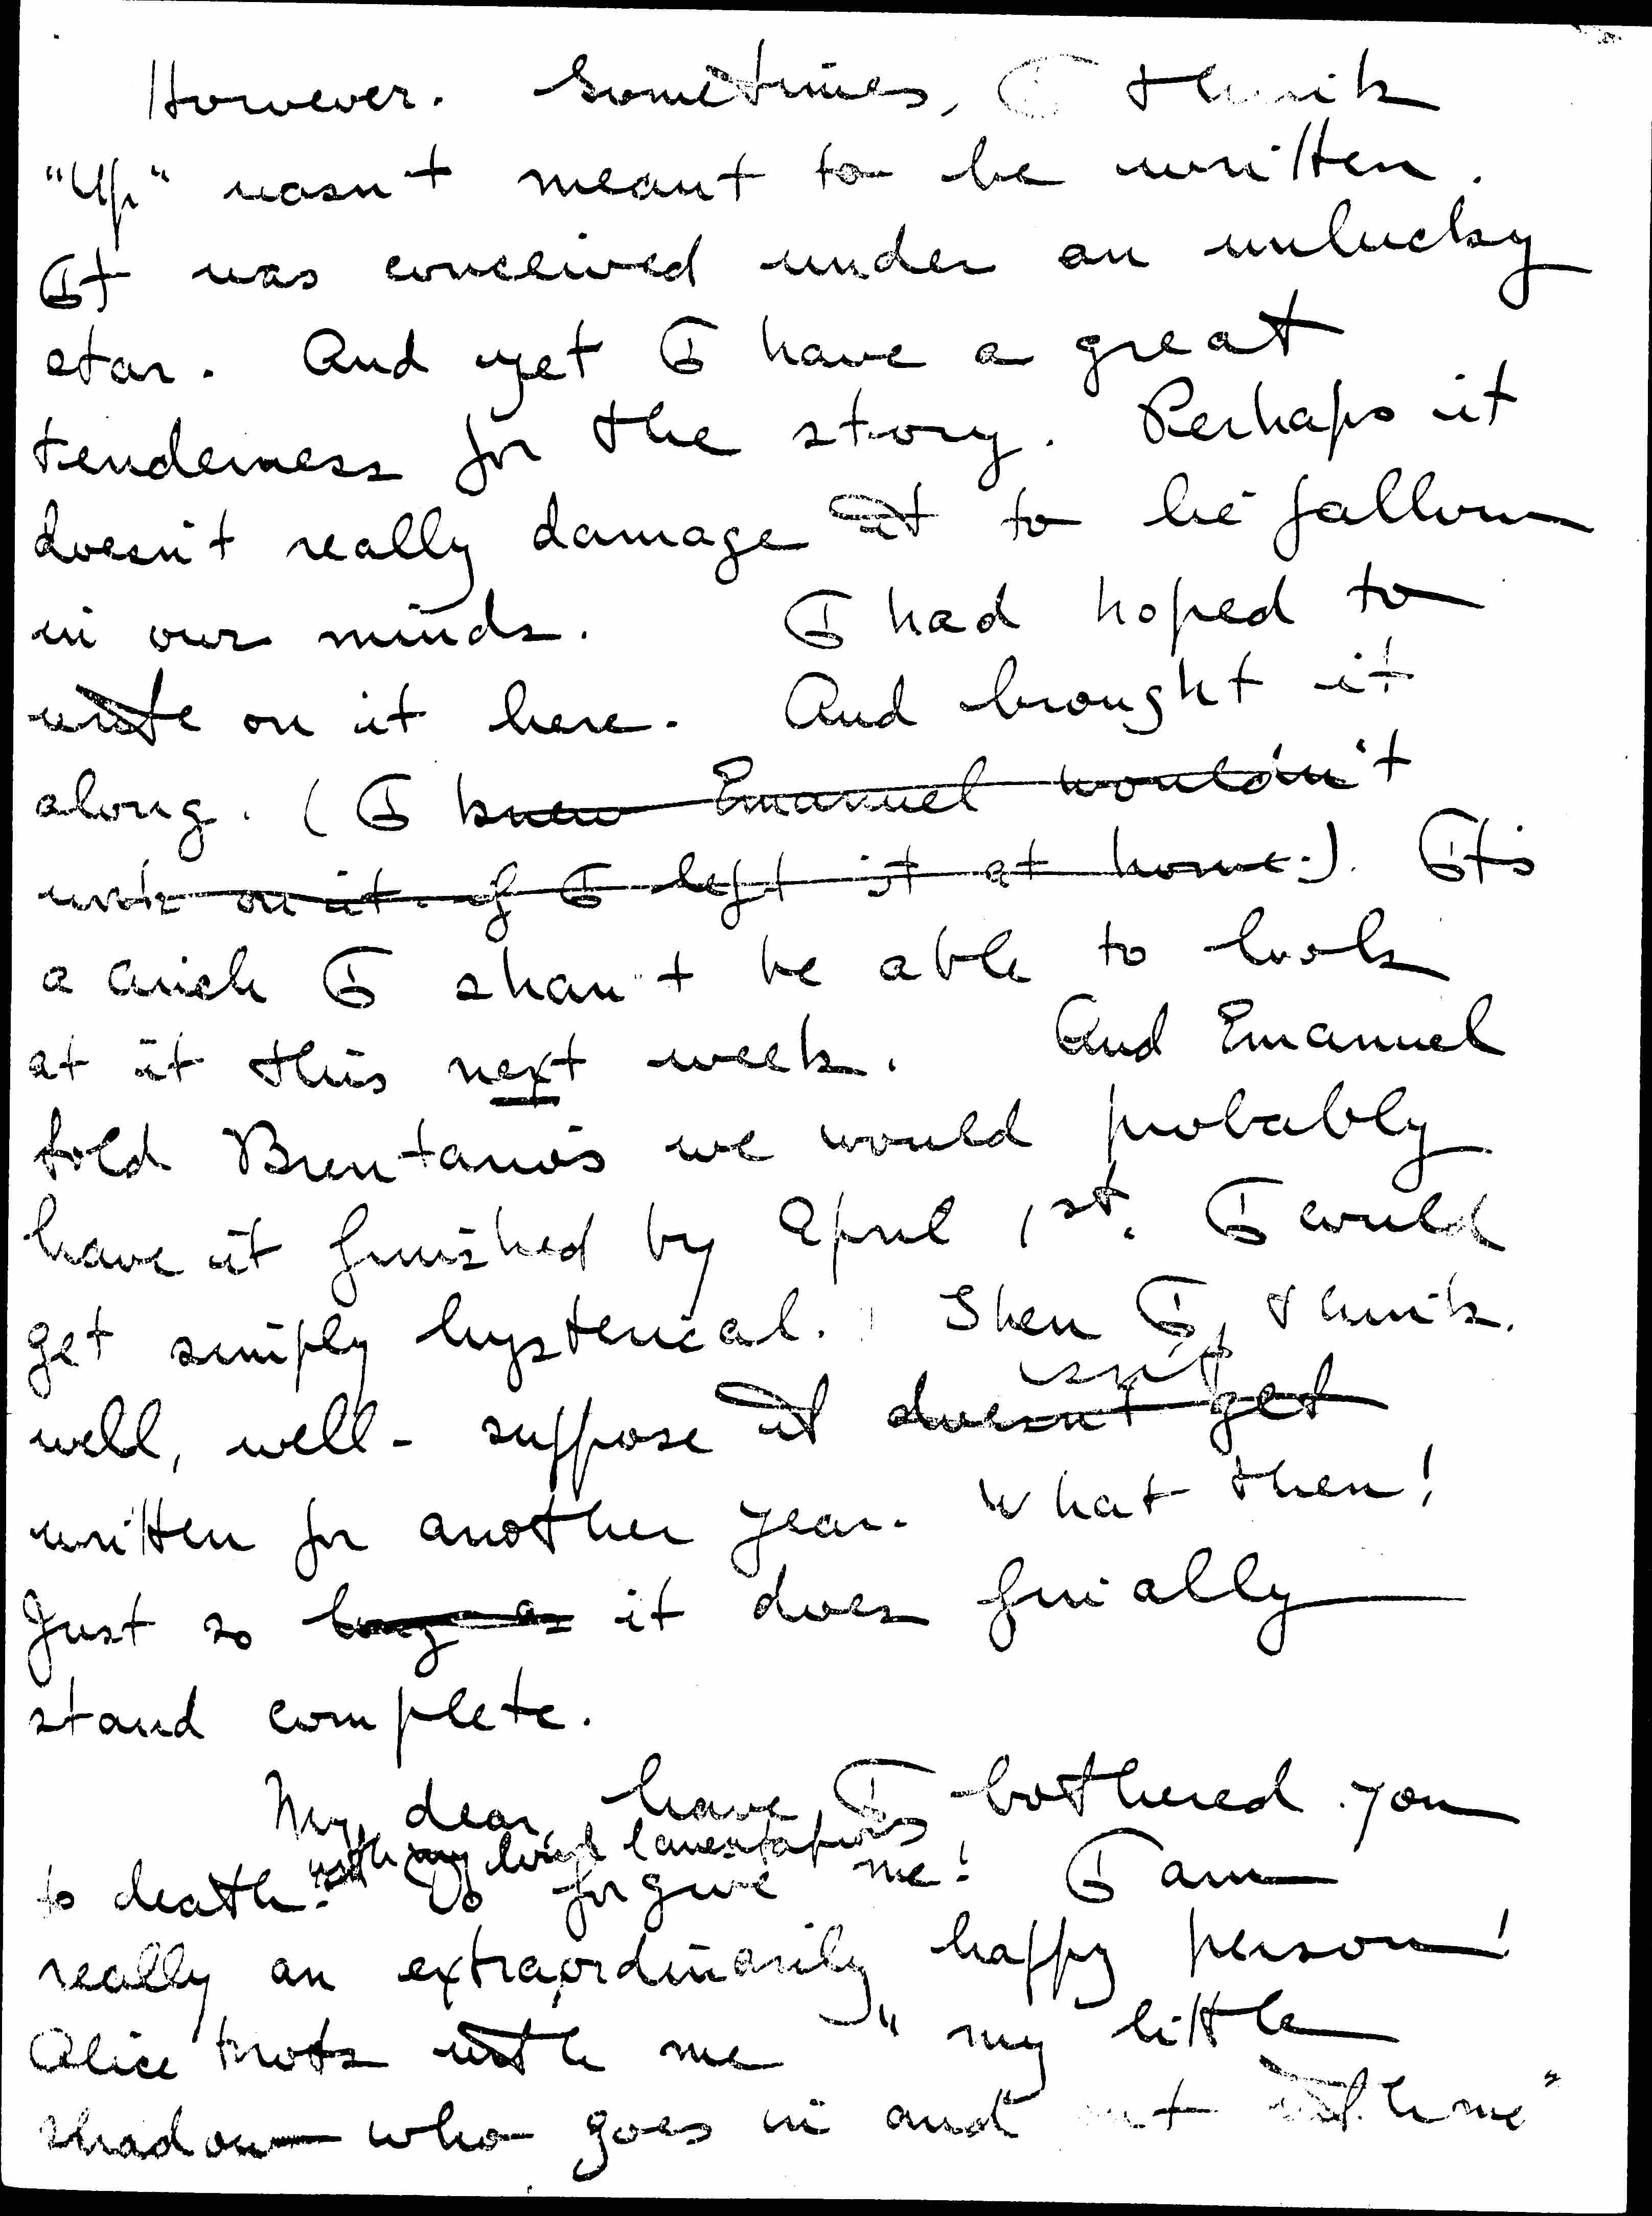 However. Sometimes, I think
"Up" wasn't meant to be written.
It was conceived under an unlucky
star. And yet I have a great
tenderness for the story. Perhaps it
doesn't really damage it to lie fallow
in our minds. I had hoped to
write on it here. And brought it
along. (I knew Emanuel wouldn't
work on it if I left it at home.). It's
a cinch I shan't be able to look
at it this next week. And Emanuel
told Brentano's we would probably
have it finished by April 1st. I could
get simply hysterical. Then I think.
well, well - suppose it doesn't get
isn't
written for another year. What then!
Just so long as it does finally
stand complete.
My dear, have I bothered you
with my lamentations
to death? Do forgive me! I am
really an extraordinarily happy person!
Alice trots with me "my little
shadow who goes in and out with me"